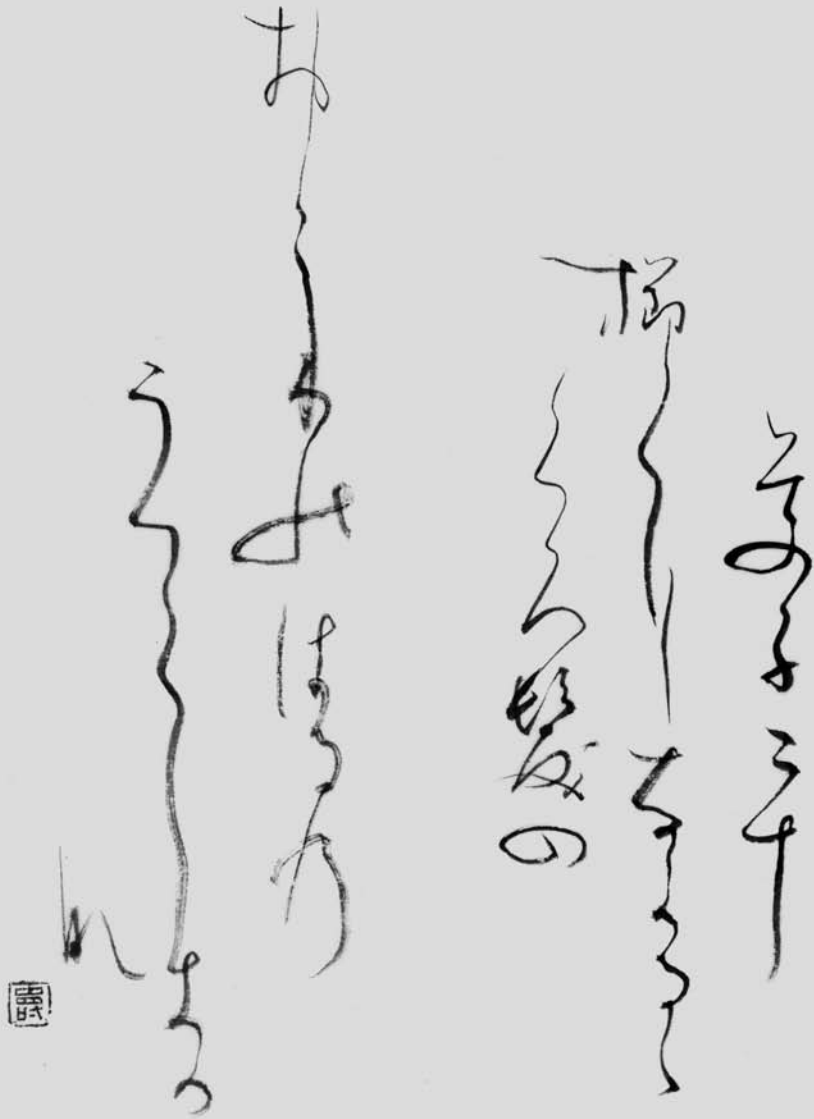 その子二十
櫛になかるゝ
くろ髪の
おこりのはるの
うつくしきか
な